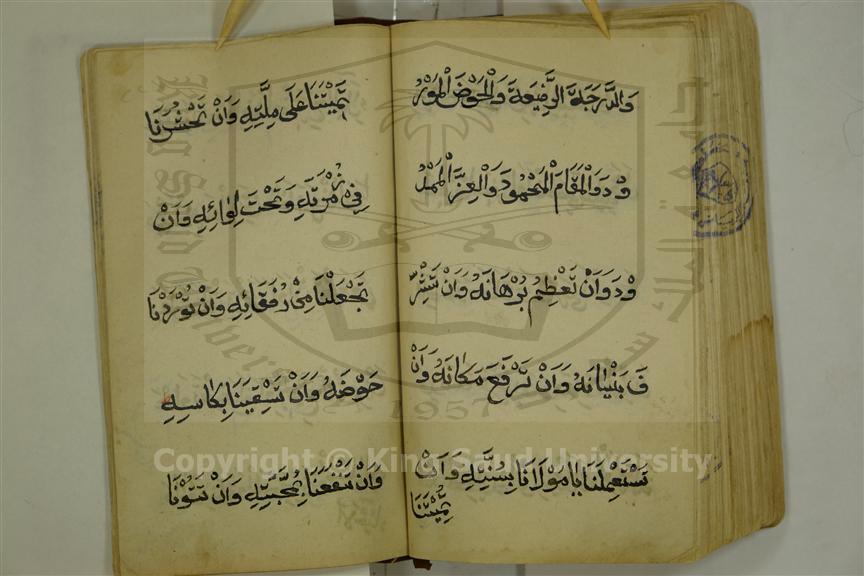 وَالدَّرَجَةَ الرَّفِيعَةَ وَالْحَوْضَ الْمَوْرُ
وْدَ وَالْمَقَامَ الْمَحْمُودَ وَالْعِزَّ الْمَمْدُ
وْدَ وَاَنْ تُعَظِّمُ بُرْهَانَهُ وَاَنْ تُشَرِّ
فَ بَنْيَانَهُ وَاَنْ تَرْفَعَ مَكَانَهُ وَاَنْ
تَسْتَعْمِلَنَا يَا مَوْلَانَا بِسُنَّتِهِ وَاَنْ
تُمِيْتَنَا
تُمِيْتَنَا عَلَى مِلَّتِهِ وَاَنْ تَحْشُرَنَا
فِي زُمْرَتِهِ وَتَحْتَ لِوَائِهِ وَاَنْ
تَجْعَلْنَا مِنْ رُفَقَائِهِ وَاَنْ تُوْرِدْنَا
حَوْضَهُ وَاَنْ تَسْقِيَنَا بِكَاسِهِ
وَاَنْ تَنْفَعَنَا بِمُحَبَّتِهِ وَاَنْ تَتُوْبَ
Copyright © King Saud University
1957